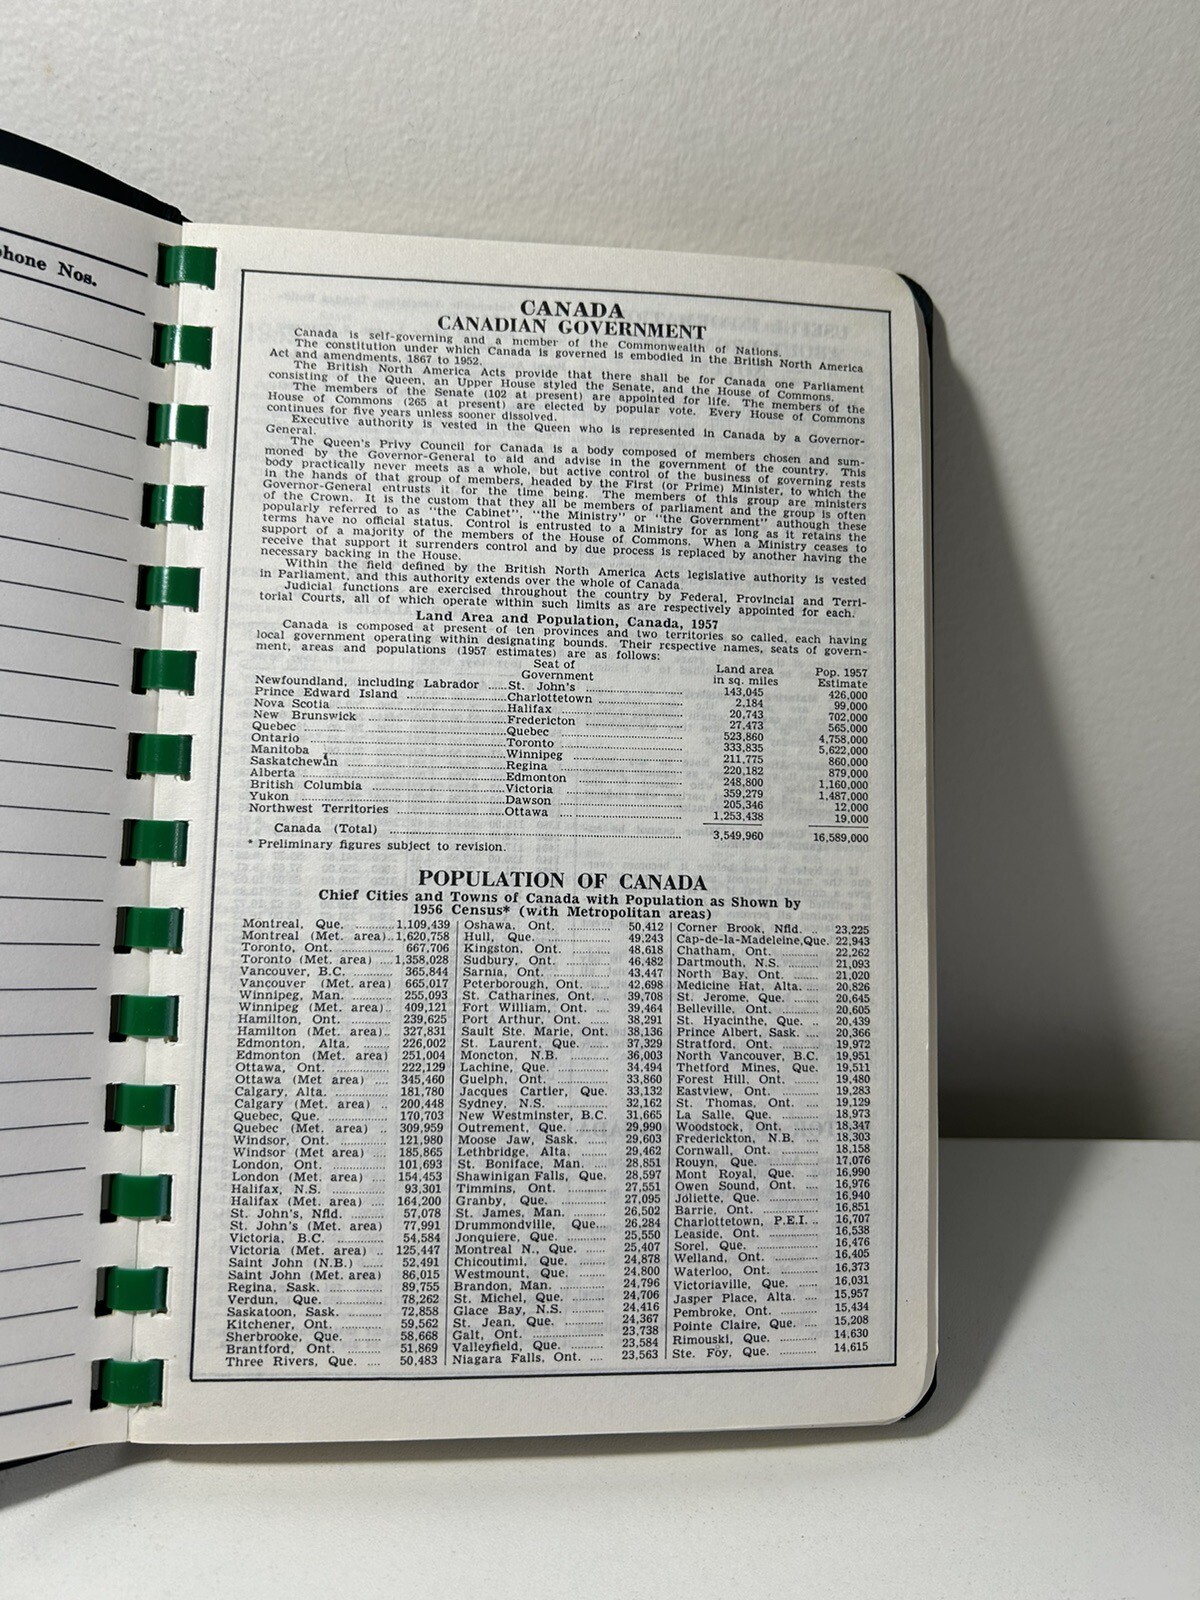 phone Nos.
CANADA
CANADIAN GOVERNMENT
Canada is self-governing and a member of the Commonwealth of Nations.
The constitution under which Canada is governed is embodied in the British North America
Act and amendments, 1867 to 1952.
The British North America Acts provide that there shall be for Canada one Parliament
consisting of the Queen, an Upper House styled the Senate, and the House of Commons.
The members of the Senate (102 at present) are appointed for life. The members of the
House of Commons (265 at present) are elected by popular vote. Every House of Commons
continues for five years unless sooner dissolved.
Executive authority is vested in the Queen who is represented in Canada by a Governor-
General.
The Queen's Privy Council for Canada is a body composed of members chosen and sum-
moned by the Governor-General to aid and advise in the government of the country. This
body practically never meets as a whole, but active control of the business of governing rests
in the hands of that group of members, headed by the First (or Prime) Minister, to which the
Governor-General entrusts it for the time being. The members of this group are ministers
of the Crown. It is the custom that they all be members of parliament and the group is often
popularly referred to as "the Cabinet", "the Ministry" or "the Government" although these
terms have no official status. Control is entrusted to a Ministry for as long as it retains the
support of a majority of the members of the House of Commons. When a Ministry ceases to
receive that support it surrenders control and by due process is replaced by another having the
necessary backing in the House.
Within the field defined by the British North America Acts legislative authority is vested
in Parliament, and this authority extends over the whole of Canada.
Judicial functions are exercised throughout the country by Federal, Provincial and Terri-
torial Courts, all of which operate within such limits as are respectively appointed for each.
Land Area and Population, Canada, 1957
Canada is composed at present of ten provinces and two territories so called, each having
local government operating within designating bounds. Their respective names, seats of govern-
ment, areas and populations (1957 estimates) are as follows:
Seat of Government Land area in sq. miles Pop. 1957 Estimate
Newfoundland, including Labrador ...... St. John's 143,045 426,000
Prince Edward Island Charlottetown 2,184 99,000
Nova Scotia Halifax 20,743 702,000
New Brunswick Fredericton 27,473 565,000
Quebec Quebec 523,860 4,758,000
Ontario Toronto 333,835 5,622,000
Manitoba Winnipeg 211,775 860,000
Saskatchewan Regina 220,182 879,000
Alberta Edmonton 248,800 1,160,000
British Columbia Victoria 359,279 1,487,000
Yukon Dawson 205,346 12,000
Northwest Territories Ottawa 1,253,438 19,000
Canada (Total) 3,549,960 16,589,000
* Preliminary figures subject to revision.
POPULATION OF CANADA
Chief Cities and Towns of Canada with Population as Shown by
1956 Census* (with Metropolitan areas)
Montreal, Que. 1,109,439
Montreal (Met. area) 1,620,758
Toronto, Ont. 667,706
Toronto (Met. area) 1,358,028
Vancouver, B.C. 365,844
Vancouver (Met. area) 665,017
Winnipeg, Man. 255,093
Winnipeg (Met. area) 409,121
Hamilton, Ont. 239,625
Hamilton (Met. area) 327,831
Edmonton, Alta. 226,002
Edmonton (Met. area) 251,004
Ottawa, Ont. 222,129
Ottawa (Met area) 345,460
Calgary, Alta. 181,780
Calgary (Met. area) 200,448
Quebec, Que. 170,703
Quebec (Met. area) 309,959
Windsor, Ont. 121,980
Windsor (Met. area) 185,865
London, Ont. 101,693
London (Met. area) 154,453
Halifax, N.S. 93,301
Halifax (Met. area) 164,200
St. John's, Nfld. 57,078
St. John's (Met. area) 77,991
Victoria, B.C. 54,584
Victoria (Met. area) 125,447
Saint John (N.B.) 52,491
Saint John (Met. area) 86,015
Regina, Sask. 89,755
Verdun, Que. 78,262
Saskatoon, Sask. 72,858
Kitchener, Ont. 59,562
Sherbrooke, Que. 58,668
Brantford, Ont. 51,869
Three Rivers, Que. 50,483
Oshawa, Ont. 50,412
Hull, Que. 49,243
Kingston, Ont. 48,618
Sudbury, Ont. 46,482
Sarnia, Ont. 43,447
Peterborough, Ont. 42,698
St. Catharines, Ont. 39,708
Fort William, Ont. 39,464
Port Arthur, Ont. 38,291
Sault Ste. Marie, Ont. 38,136
St. Laurent, Que. 37,329
Moncton, N.B. 36,003
Lachine, Que. 34,494
Guelph, Ont. 33,860
Jacques Cartier, Que. 33,132
Sydney, N.S. 32,162
New Westminster, B.C. 31,665
Outrement, Que. 29,990
Moose Jaw, Sask. 29,603
Lethbridge, Alta. 29,462
St. Boniface, Man. 28,851
Shawinigan Falls, Que. 28,597
Timmins, Ont. 27,551
Granby, Que. 27,095
St. James, Man. 26,502
Drummondville, Que. 26,284
Jonquiere, Que. 25,550
Montreal N., Que. 25,407
Chicoutimi, Que. 24,878
Westmount, Que. 24,800
Brandon, Man. 24,796
St. Michel, Que. 24,706
Glace Bay, N.S. 24,416
St. Jean, Que. 24,367
Galt, Ont. 23,738
Valleyfield, Que. 23,584
Niagara Falls, Ont. 23,563
Corner Brook, Nfld. 23,225
Cap-de-la-Madeleine, Que. 22,943
Chatham, Ont. 22,262
Dartmouth, N.S. 21,093
North Bay, Ont. 21,020
Medicine Hat, Alta. 20,826
St. Jerome, Que. 20,645
Belleville, Ont. 20,605
St. Hyacinthe, Que. 20,439
Prince Albert, Sask. 20,366
Stratford, Ont. 19,972
North Vancouver, B.C. 19,951
Thetford Mines, Que. 19,511
Forest Hill, Ont. 19,480
Eastview, Ont. 19,283
St. Thomas, Ont. 19,129
La Salle, Que. 18,973
Woodstock, Ont. 18,347
Frederickton, N.B. 18,303
Cornwall, Ont. 18,158
Rouyn, Que. 17,076
Mont Royal, Que. 16,990
Owen Sound, Ont. 16,976
Joliette, Que. 16,940
Barrie, Ont. 16,851
Charlottetown, P.E.I. 16,707
Leaside, Ont. 16,538
Sorel, Que. 16,476
Welland, Ont. 16,405
Waterloo, Ont. 16,373
Victoriaville, Que. 16,031
Jasper Place, Alta. 15,957
Pembroke, Ont. 15,434
Pointe Claire, Que. 15,208
Rimouski, Que. 14,630
Ste. Foy, Que. 14,615